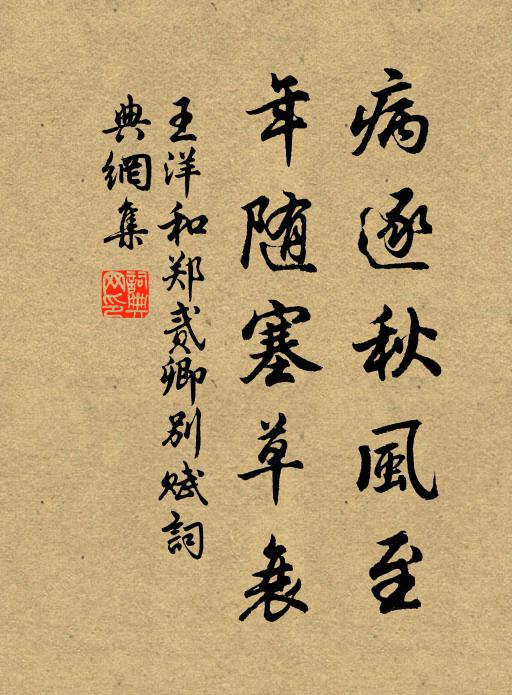 病逐秋風至
年随塞草衰
王洋和郑贰卿别赋詞
典網集
詞典网印